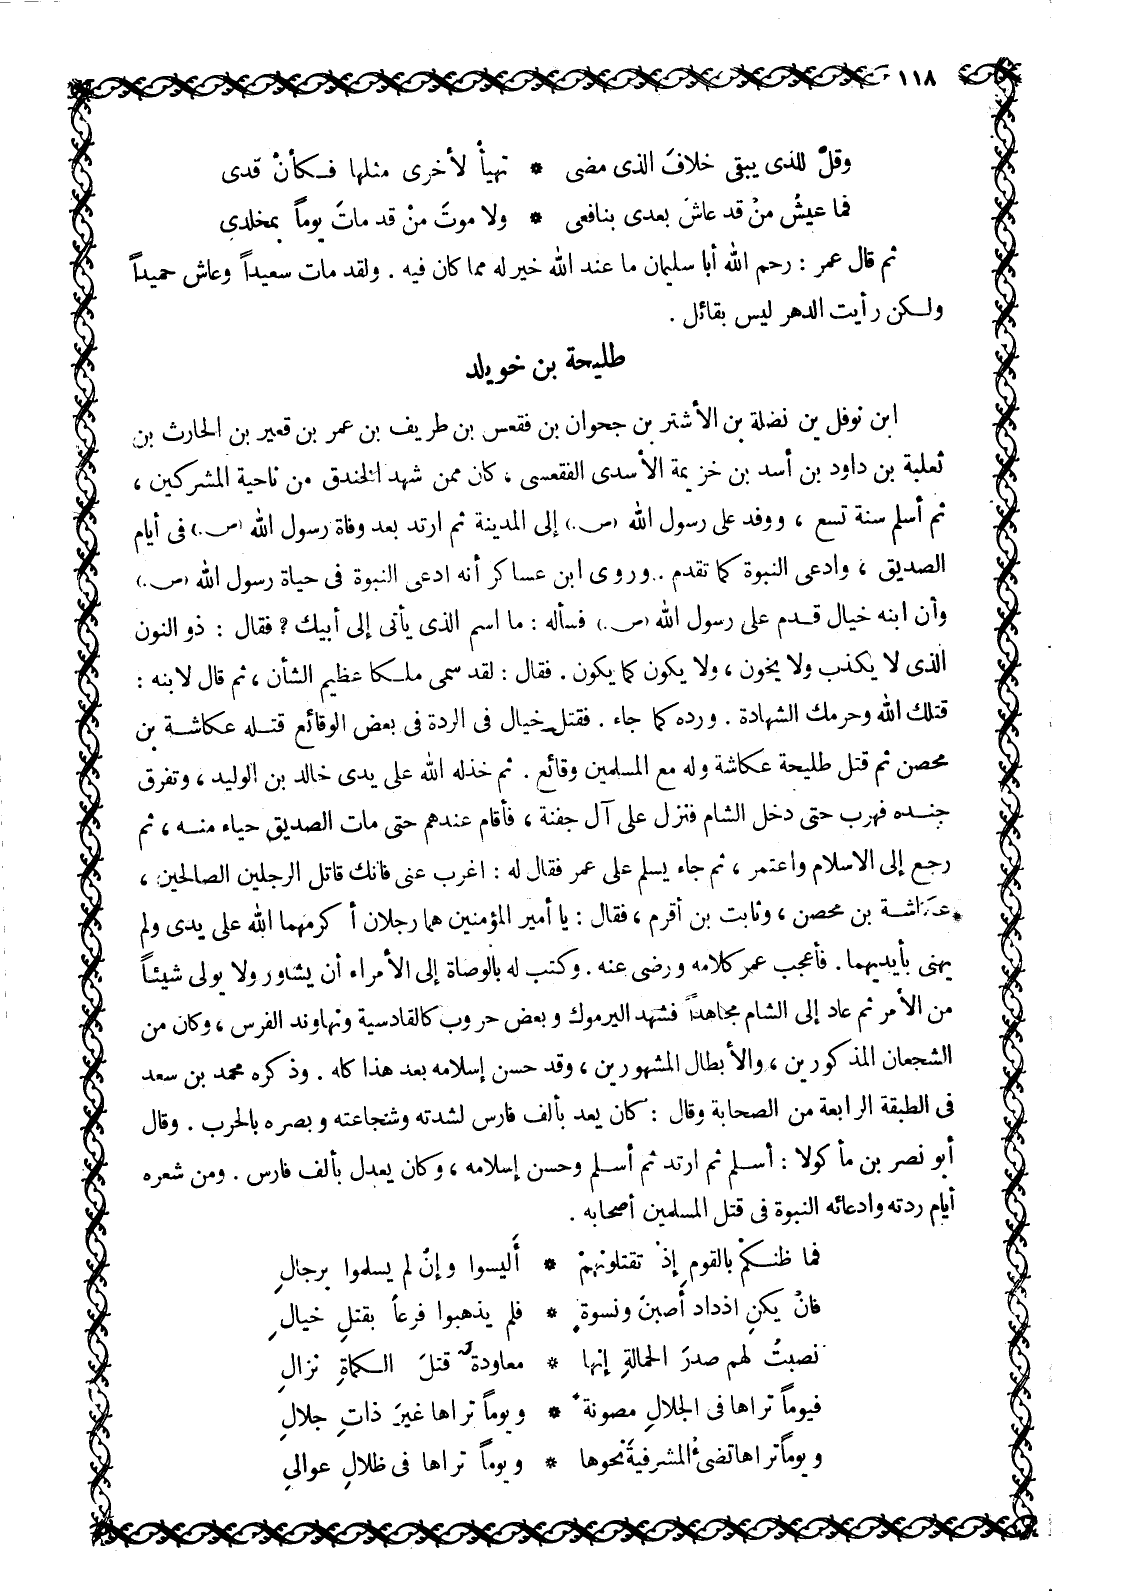 ١١٨
وقلْ للذى يبقى خلافَ الذى مضى * تهيأْ لأخرى مثلها فكأنْ قدى
فما عيشُ منْ قد عاشَ بعدى بنافعى * ولا موتَ منْ قد ماتَ يوماً بمخلدىِ
ثم قال عمر : رحم الله أبا سليمان ما عند الله خير له مما كان فيه . ولقد مات سعيداً وعاش حميداً
ولكن رأيت الدهر ليس بقائل .
طليحة بن خويلد
ابن نوفل بن نضلة بن الأشتر بن جحوان بن فقعس بن طريف بن عمر بن قعير بن الحارث بن
ثعلبة بن داود بن أسد بن خزيمة الأسدى الفقعسى ، كان ممن شهد الخندق من ناحية المشركين ،
ثم أسلم سنة تسع ، ووفد على رسول الله (ص.) إلى المدينة ثم ارتد بعد وفاة رسول الله (ص.) فى أيام
الصديق ، وادعى النبوة كما تقدم . وروى ابن عساكر أنه ادعى النبوة فى حياة رسول الله (ص.)
وأن ابنه خيال قدم على رسول الله (ص.) فسأله : ما اسم الذى يأتى إلى أبيك ? فقال : ذو النون
الذى لا يكذب ولا يخون ، ولا يكون كما يكون . فقال : لقد سمى ملكا عظيم الشأن ، ثم قال لابنه :
قتلك الله وحرمك الشهادة . ورده كما جاء . فقتل خيال فى الردة فى بعض الوقائع قتله عكاشة بن
محصن ثم قتل طليحة عكاشة وله مع المسلمين وقائع . ثم خذله الله على يدى خالد بن الوليد ، وتفرق
جنده فهرب حتى دخل الشام فنزل على آل جفنة ، فأقام عندهم حتى مات الصديق حياء منه ، ثم
رجع إلى الاسلام واعتمر ، ثم جاء يسلم على عمر فقال له : اغرب عنى فانك قاتل الرجلين الصالحين ،
عكاشة بن محصن ، وثابت بن أقرم ، فقال : يا أمير المؤمنين هما رجلان أكرمهما الله على يدى ولم
يهنى بأيديهما . فأعجب عمر كلامه ورضى عنه . وكتب له بالوصاة إلى الأمراء أن يشاور ولا يولى شيئاً
من الأمر ثم عاد إلى الشام مجاهداً فشهد اليرموك وبعض حروب كالقادسية ونهاوند الفرس ، وكان من
الشجعان المذكورين ، والأبطال المشهورين ، وقد حسن إسلامه بعد هذا كله . وذكره محمد بن سعد
فى الطبقة الرابعة من الصحابة وقال : كان يعد بألف فارس لشدته وشجاعته وبصره بالحرب . وقال
أبو نصر بن ماكولا : أسلم ثم ارتد ثم أسلم وحسن إسلامه ، وكان يعدل بألف فارس . ومن شعره
أيام ردته وادعائه النبوة فى قتل المسلمين أصحابه .
فما ظنكمْ بالقومِ إذْ تقتلونهمْ * أَليسوا وإنْ لم يسلموا برجالِ
فانْ يكنِ اذداد أُصبنَ ونسوة * فلم يذهبوا فرعاً بقتلِ خيالِ
نصبتُ لهم صدرَ الحمالةِ إنها * معاودة قتلَ الكماةِ نزالِ
فيوماً تراها فى الجلالِ مصونة * ويوماً تراها غيرَ ذاتِ جلالِ
ويوماً تراها تضىءُ المشرفيةَ نحوها * ويوماً تراها فى ظلالِ عوالىِ